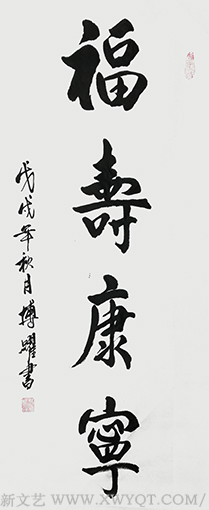 福壽康寧
戊戌年秋月搏躍書
新文艺 WWW.XWYQT.COM